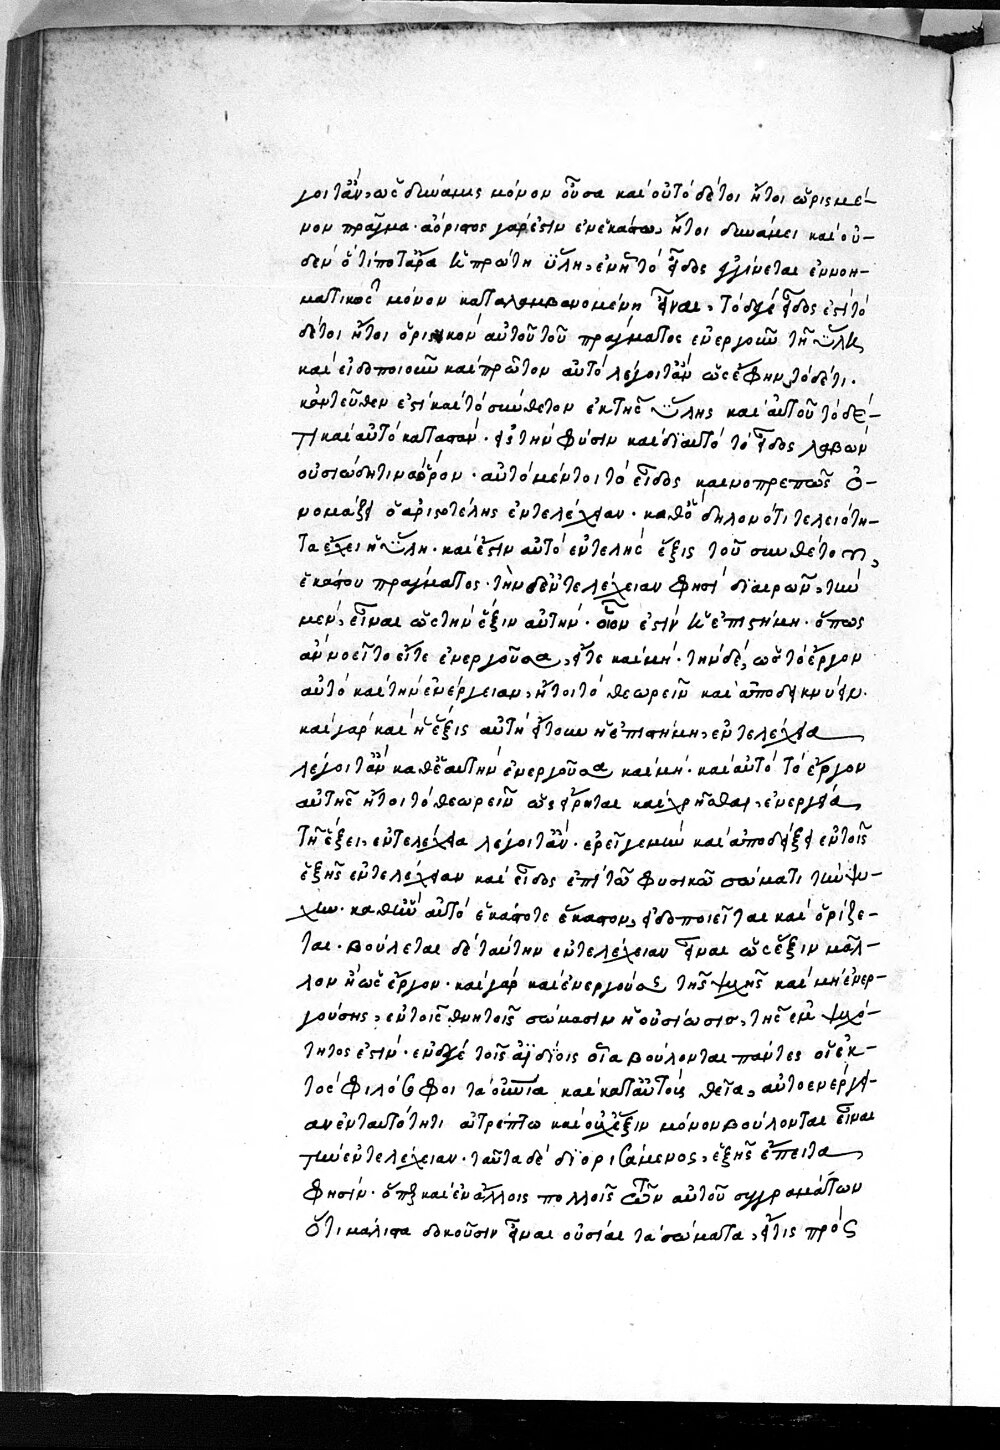 γοιτ' ἂν, ὡς δυνάμις μόνον οὖσα καὶ οὐ τόδέ τοι ἤτοι ὡρισμέ-
νον πρᾶγμα· ἀόριστος γάρ ἐστιν ἐν ἑκάστω, ἤτοι δυνάμει καὶ οὐ-
δὲν ὅτι ποτ' ἄρα ἡ πρώτη ὕλη, ἐν ἧ τὸ εἶδος γίνεται ἐννοη-
ματικῶς μόνον καταλαμβανομένη εἶναι, τὸ δέ γε εἶδος ἐστὶ τὸ
δέ τοι ἤτοι ὁριστικὸν αὐτοῦ τοῦ πράγματος ἐνεργοῦν τῆ ὕλη
καὶ εἰδοποιοῦν καὶ πρῶτον αὐτὸ λέγοιτ' ἂν ὡς ἔφην τόδέ τι.
κἀντεῦθεν ἐστὶ καὶ τὸ σύνθετον ἐκ τῆς ὕλης καὶ αὐτοῦ τὸ δέ
τι καὶ αὐτὸ καταπᾶν· εἰς τὴν φύσιν καὶ δι' αυτὸ τὸ εἶδος λαβὼν
οὐσιώδη τινα ὅρον· αὐτὸ μέντοι τὸ εἶδος καινοπρεπῶς ὀ-
νομάζει ὁ ἀριστοτέλης ἐντελέχειαν· καθὸ δηλονότι τελειότη-
τα ἔχει ἡ ὕλη· καὶ ἔστιν αὐτὸ ἐντελὴς ἕξις τοῦ συνθέτου,
ἑκάστου πράγματος· τὴν δ' ἐντελέχειαν φησὶ διαιρῶν, τὴν
μὲν, εἶναι ὡς τὴν ἕξιν αὐτὴν· οἷον ἐστὶν ἡ ἐπιστήμη· ὅπως
ἂν νοεῖτο εἴτε ἐνεργοῦσα, εἴτε καὶ μὴ· τὴν δὲ, ὡς τὸ ἔργον
αὐτὸ καὶ τὴν ἐνέργειαν, ἤτοι τὸ θεωρεῖν καὶ ἀποδεικνύειν.
καὶ γὰρ καὶ ἡ ἕξις αὐτὴ ἤτουν ἡ ἐπιστήμη, ἐντελέχεια
λέγοιτ' ἂν καθ' ἑαυτὴν ἐνεργοῦσα καὶ μὴ· καὶ αὐτὸ τὸ ἔργον
αὐτῆς ἤτοι τὸ θεωρεῖν ὡς εἴρηται καὶ χρῆσθαι, ἐνεργεία
τῆ ἕξει, ἐντελέχεια λέγοιτ' ἂν. ἐρεῖ μὲν καὶ ἀποδείξει ἐν τοῖς
ἑξῆς ἐντελέχειαν καὶ εἶδος ἐπὶ τῶ φυσικῶ σώματι τὴν ψυ-
χὴν. καθ' ἣν αὐτὸ ἑκάστοτε ἕκαστον, εἰδοποιεῖται καὶ ὁρίζε-
ται. βούλεται δὲ ταύτην ἐντελέχειαν εἶναι ὡς ἕξιν μᾶλ-
λον ἢ ὡς ἔργον. καὶ γὰρ καὶ ἐνεργούσης τῆς ψυχῆς καὶ μὴ ἐνερ-
γούσης, ἐν τοῖς θνητοῖς σώμασιν ἡ οὐσίωσις, τῆς ἐμψυχό-
τητος ἐστὶν. ἐν δέ γε τοῖς ἀϊδίοις οἷα βούλονται πάντες οἱ ἐκ-
τὸς φιλόσοφοι τὰ οὐράνια καὶ κατ' αὐτοὺς θεῖα, αὐτοενέργει-
αν ἐν ταυτότητι ἀτρέπτω καὶ οὐχ ἕξιν μόνον βούλονται εἶναι
τὴν ἐντελέχειαν. ταῦτα δὲ διορισάμενος, ἑξῆς ἔπειτα
φησὶν. ὅπερ καὶ ἐν ἄλλοις πολλοῖς τῶν αὐτοῦ συγγραμμάτων
ὅτι μάλιστα δοκοῦσιν εἶναι οὐσίαι τὰ σώματα, εἴτις πρὸς